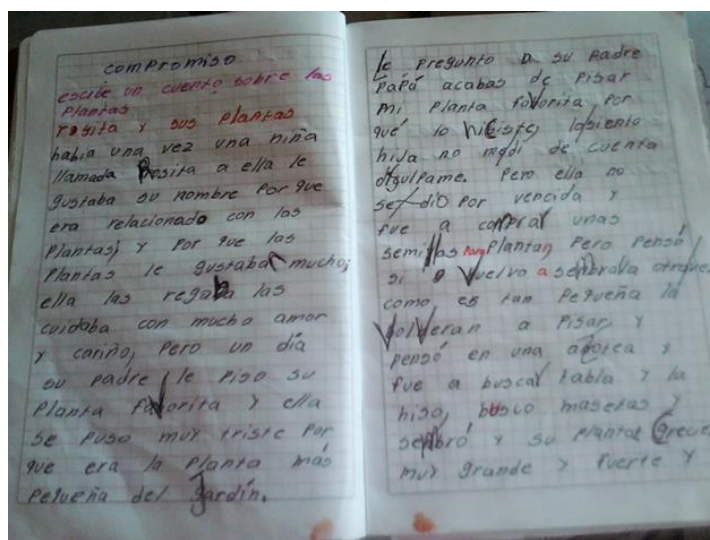 compromiso
escibe un cuento sobre las
Plantas
rosita y sus Plantas
habia una vez una niña
llamada Rosita a ella le
gustaba su nombre Por que
era relacionado con las
Plantas; y Por que las
Plantas le gustaban mucho;
ella las regaba las
cuidaba con mucho amor
y cariño, Pero un día
su padre le Piso su
Planta favorita y ella
se puso muy triste Por
que era la Planta más
Pequeña del Jardín.
le Pregunto a su Padre
PaPá acabas de Pisar
mi Planta favorita Por
qué lo hiciste, losiento
hija no medi de cuenta
Pero ella no
se dio Por vencida y
fue a comprar unas
semillas Para Plantar, Pero Pensó
si vuelvo a sembrala otravez
como es tan Pequeña la
volveran a Pisar y
Pensó en una y
fue a buscar tabla y la
hiso, busco masetas y
sembró y su Planta Crecio
muy grande y fuerte y